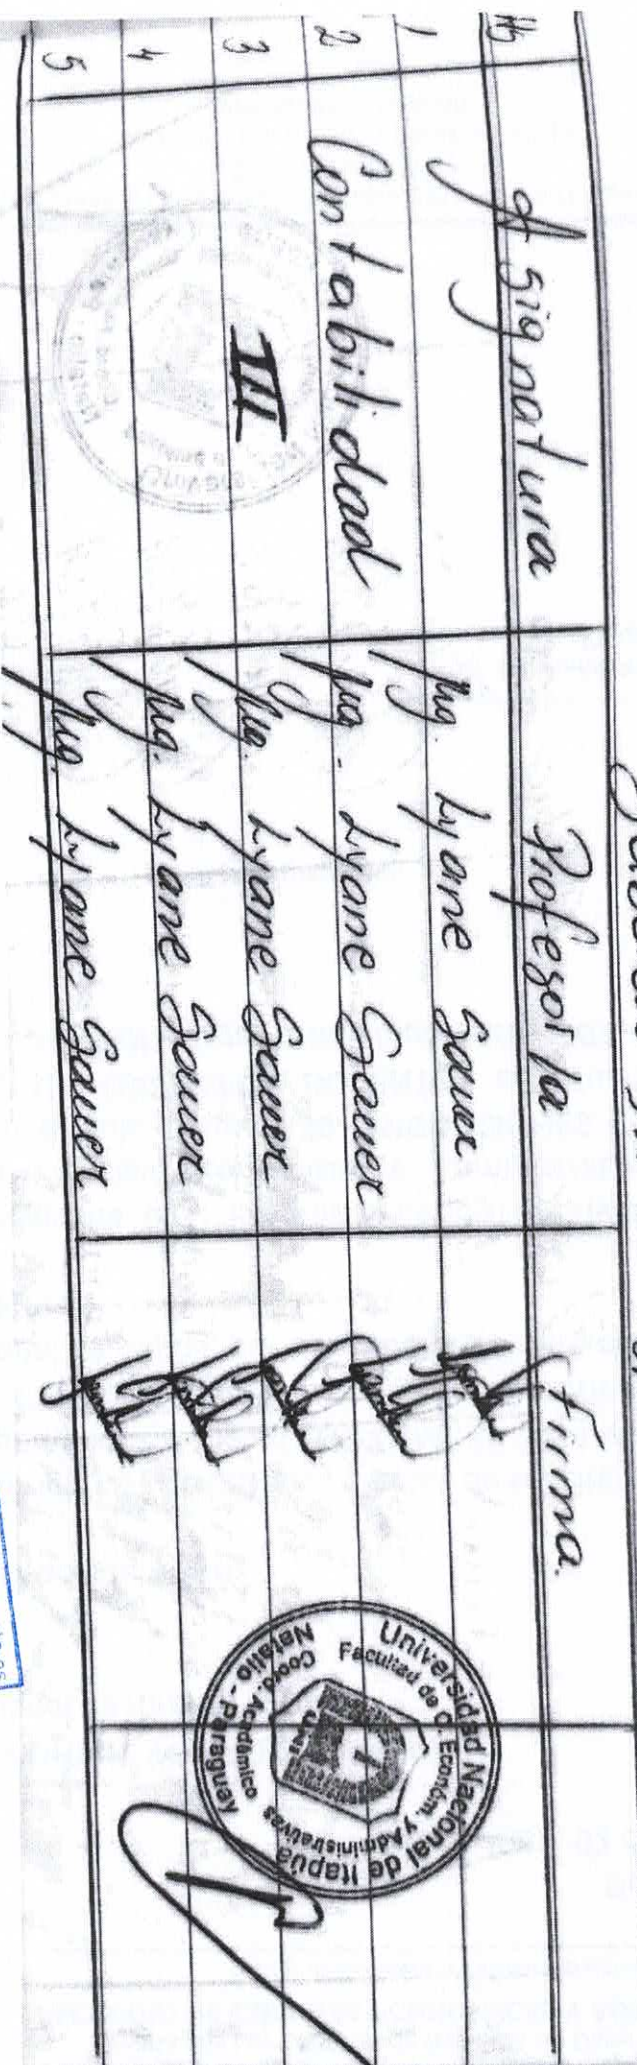 Hs Asignatura Profesor/a Firma.
1 Mg. Lyane Sauer
2 Contabilidad Mg. Lyane Sauer
3 III Mg. Lyane Sauer
4 Mg. Lyane Sauer
5 Mg. Lyane Sauer
Universidad Nacional de Itapúa
Facultad de C. Económ. y Administrativas
Coord. Académico
Natalio - Paraguay